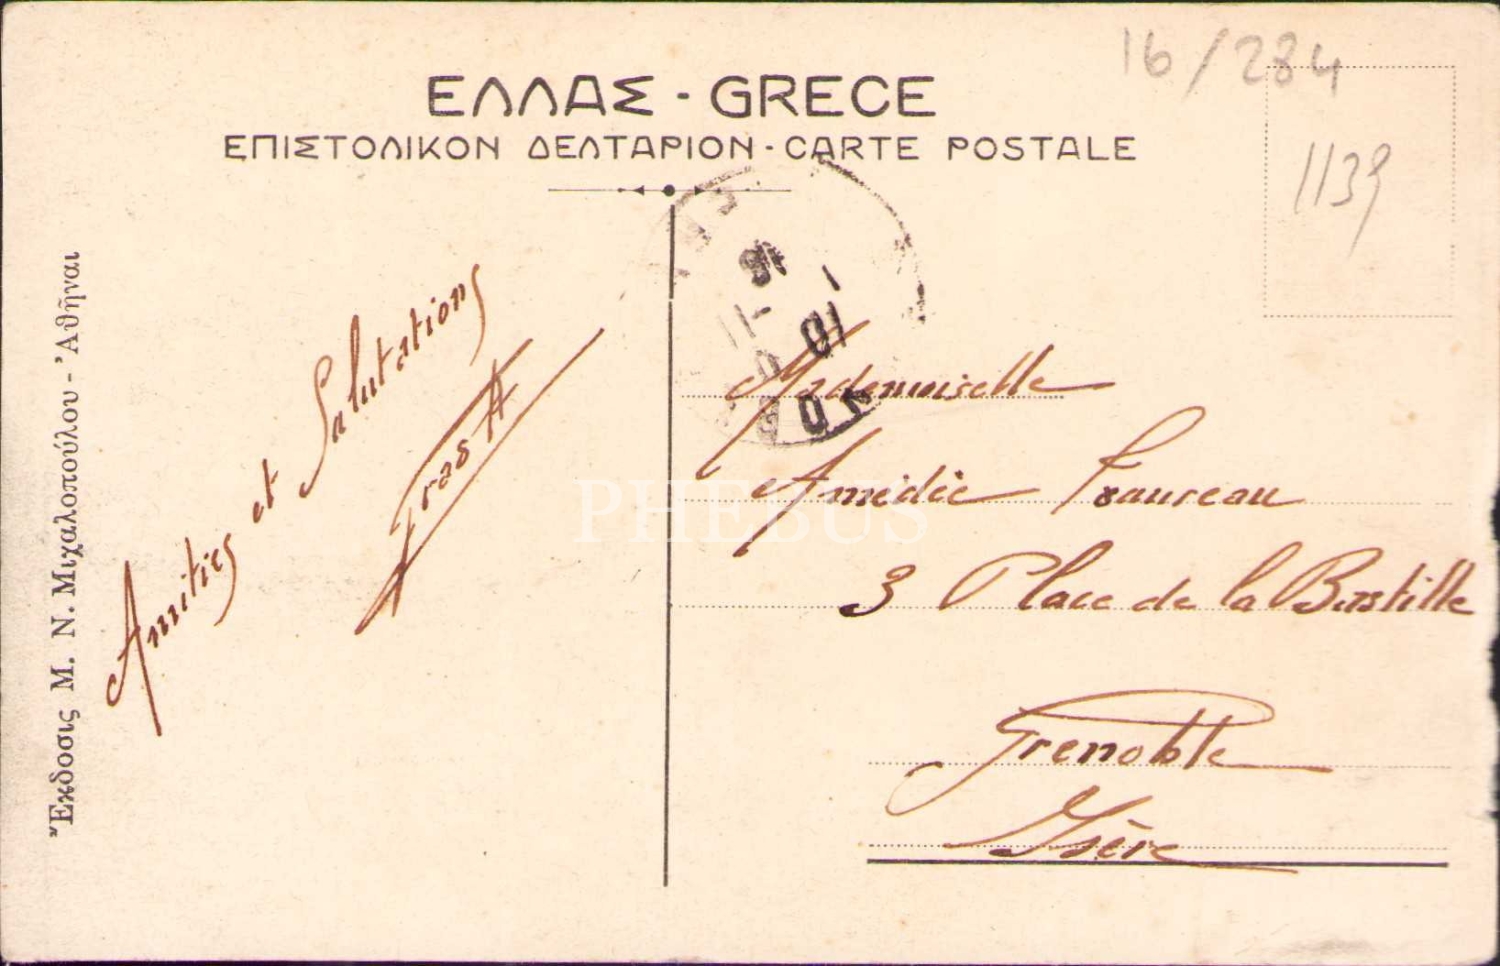 16/284
ΕΛΛΑΣ - GRECE
ΕΠΙΣΤΟΛΙΚΟΝ ΔΕΛΤΑΡΙΟΝ - CARTE POSTALE
1139
Ἔκδοσις Μ. Ν. Μιχαλοπούλου - Ἀθῆναι
Amitiés et Salutations
Gras A
Mademoiselle
Amédée
3 Place de la Bastille
Grenoble
Isère
PHEBUS